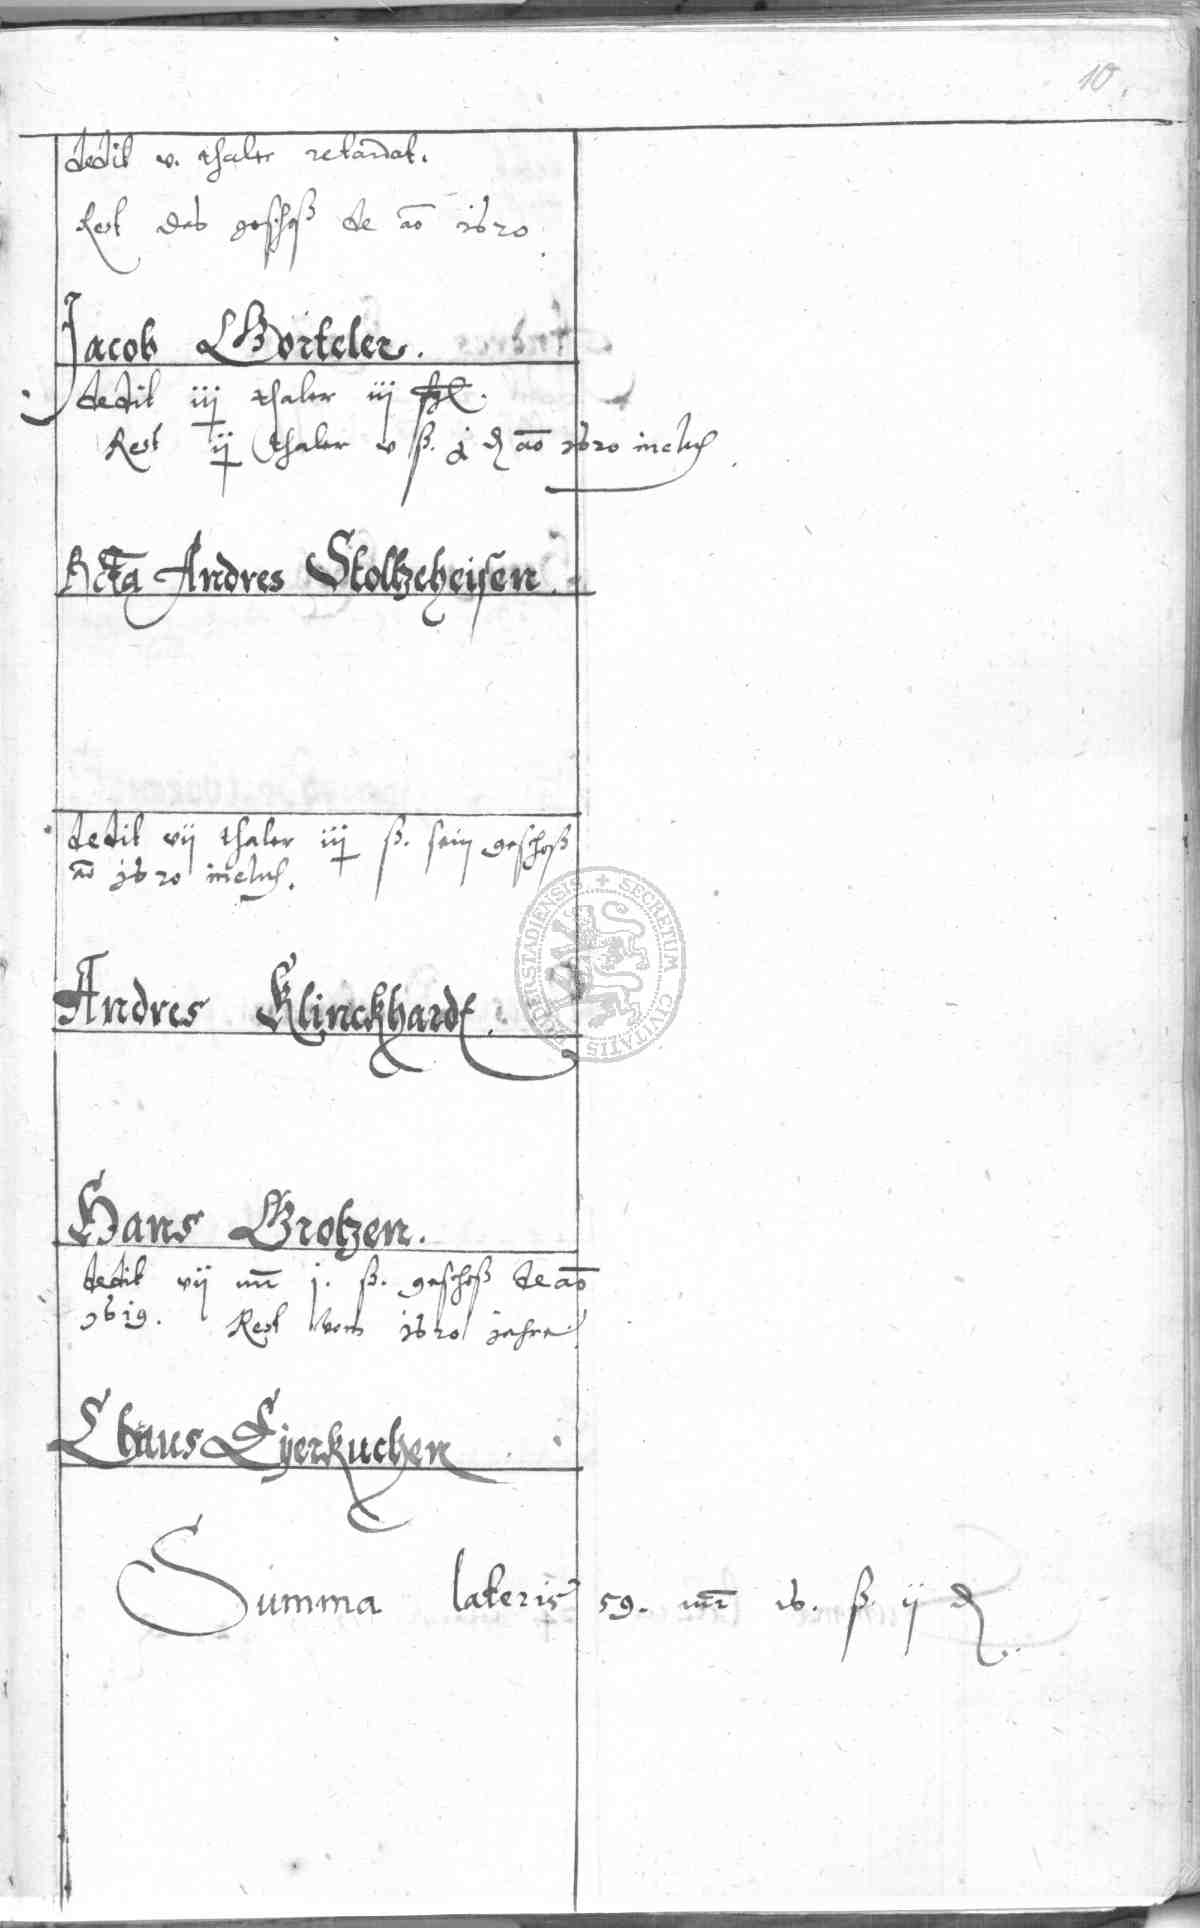 10.
dedit v. thaler retardat.
Rest das geschoß de ao 1620
Jacob Görteler.
dedit iiij thaler iij
Rest ij thaler v ß. j d ao 1620 inclus.
Relicta Andres Stoltzeheisen.
dedit vij thaler iiij ß. sein geschoß
ao 1620 inclus.
Andres Klinckhardt.
SECRETUM CIVITATIS DUDERSTADIENSIS
Hans Grotzen.
dedit vij mr j. ß. geschoß de ao
1619. Rest vom 1620 jahre
Claus Eyerkuchen
Summa lateris 59. mr 16. ß ij d